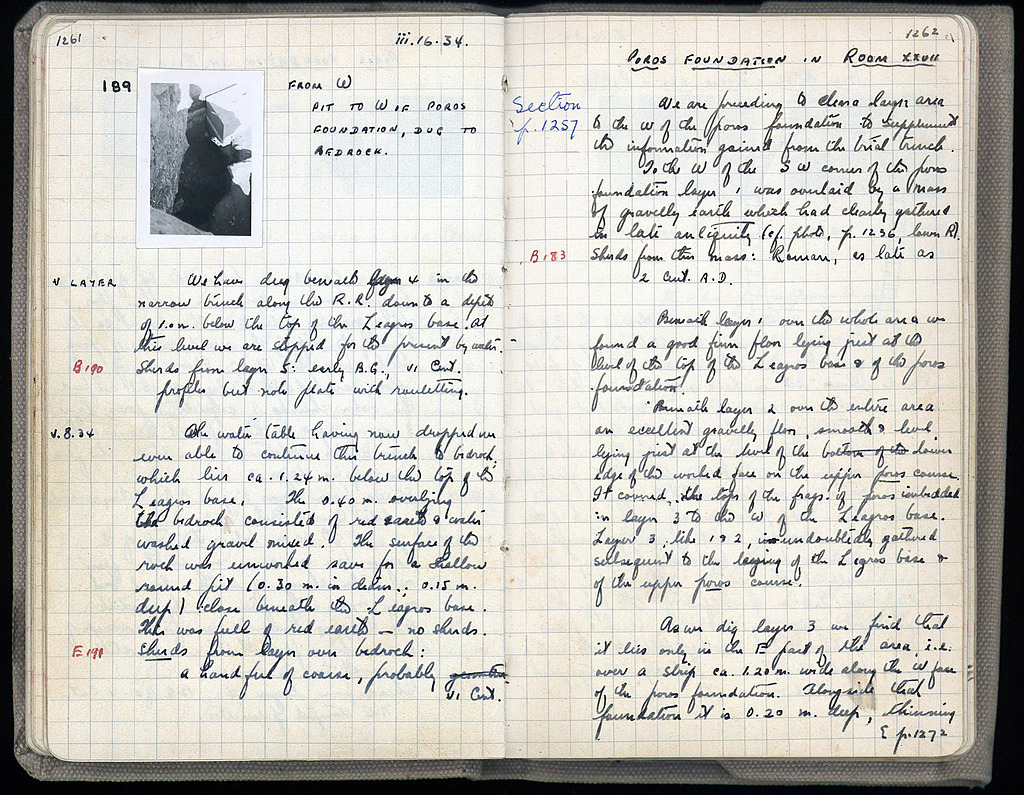 1261
iii.16.34.
189
FROM W
PIT TO W OF POROS
FOUNDATION, DUG TO
BEDROCK.
V LAYER
We have dug beneath layer 4 in the
narrow trench along the R.R. down to a depth
of 1.0 m. below the top of the Leagros base. At
this level we are stopped for the present by water.
B190
Sherds from layer 5: early B.G., VI Cent.
profiles but note plate with rouletting.
v.8.34
The water table having now dropped we
were able to continue this trench to bedrock,
which lies ca. 1.24 m. below the top of the
Leagros base. The 0.40 m. overlying
the bedrock consisted of red earth & water
washed gravel mixed. The surface of the
rock was unworked save for a shallow
round pit (0.30 m. in diam., 0.15 m.
deep) close beneath the Leagros base.
This was full of red earth — no sherds.
191
Sherds from layer over bedrock:
a handful of coarse, probably
VI Cent.
1262
POROS FOUNDATION IN ROOM XXVII
Section
p. 1257
We are proceeding to clear a larger area
to the W of the poros foundation to supplement
the information gained from the trial trench.
To the W of the SW corner of the poros
foundation layer 1 was overlaid by a mass
of gravelly earth which had clearly gathered
in late antiquity (cf. photo, p. 1236, lower R).
B183
Sherds from this mass: Roman, as late as
2 Cent. A.D.
Beneath layer 1 over the whole area we
found a good firm floor lying just at the
level of the top of the Leagros base & of the poros
foundation.
Beneath layer 2 over the entire area
an excellent gravelly floor, smooth & level
lying just at the level of the bottom of the lower
edge of the worked face on the upper poros course.
It covered the tops of the frags. of poros imbedded
in layer 3 to the W of the Leagros base.
Layer 3, like 1 & 2, undoubtedly gathered
subsequent to the laying of the Leagros base &
of the upper poros course.
As we dig layer 3 we find that
it lies only in the E part of the area, i.e.
over a strip ca. 1.20 m. wide along the W face
of the poros foundation. Alongside that
foundation it is 0.20 m. deep, thinning
p. 1272